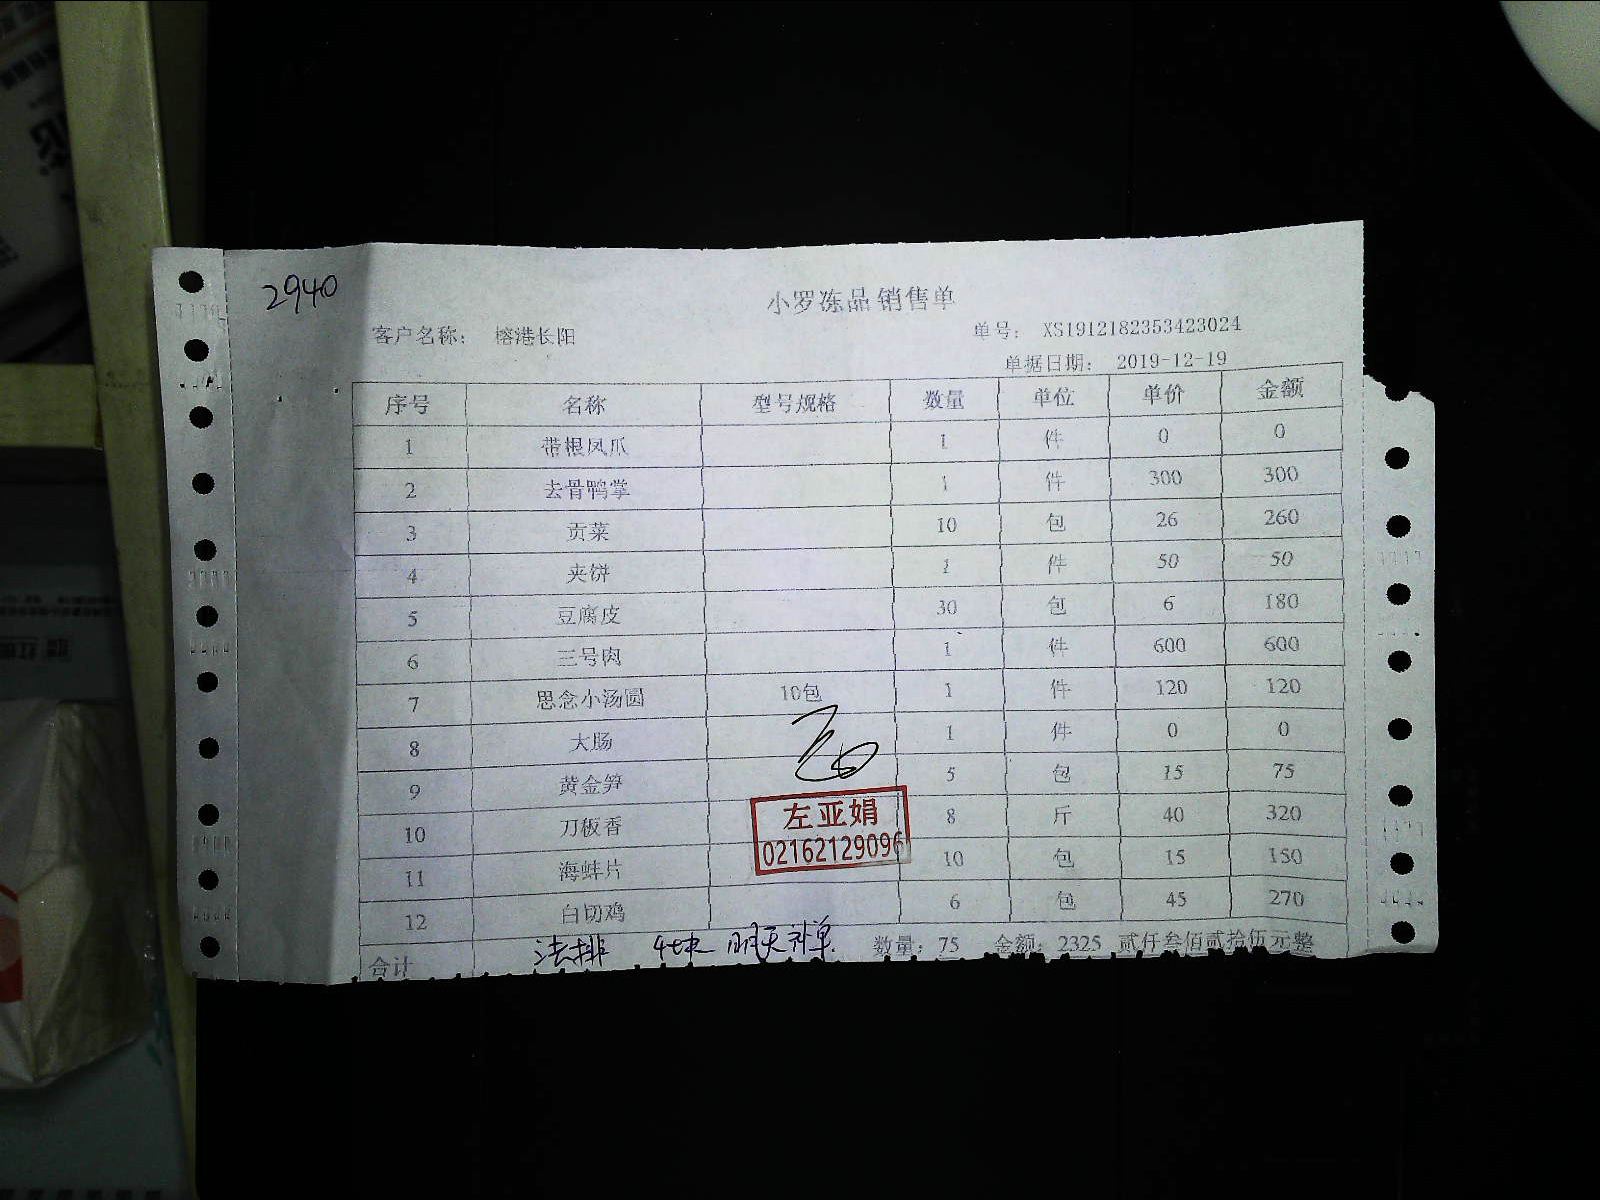 2940
小罗冻品销售单
客户名称： 榕港长阳 单号： XS1912182353423024
单据日期： 2019-12-19
序号 名称 型号规格 数量 单位 单价 金额
1 带根凤爪 1 件 0 0
2 去骨鸭掌 1 件 300 300
3 贡菜 10 包 26 260
4 夹饼 1 件 50 50
5 豆腐皮 30 包 6 180
6 三号肉 1 件 600 600
7 思念小汤圆 10包 1 件 120 120
8 大肠 1 件 0 0
9 黄金笋 5 包 15 75
10 刀板香 8 斤 40 320
左亚娟
02162129096
11 海蚌片 10 包 15 150
12 白切鸡 6 包 45 270
法排 4块 明天补单
合计 数量：75 金额：2325 贰仟叁佰贰拾伍元整